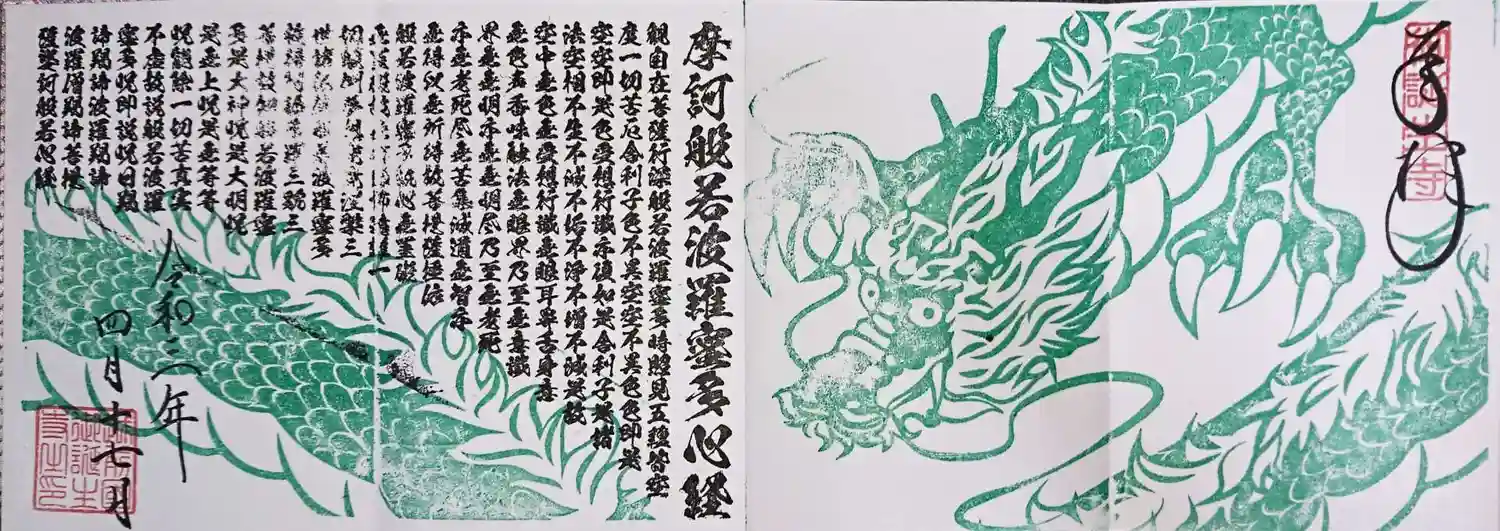 奉拝
摩訶般若波羅蜜多心経
観自在菩薩行深般若波羅蜜多時照見五蘊皆空
度一切苦厄舎利子色不異空空不異色色即是
空空即是色受想行識亦復如是舎利子是諸
法空相不生不滅不垢不浄不増不減是故
空中無色無受想行識無眼耳鼻舌身意
無色声香味触法無眼界乃至無意識
界無無明亦無無明尽乃至無老死
亦無老死尽無苦集滅道無智亦
無得以無所得故菩提薩埵依
般若波羅蜜多故心無罣礙
無罣礙故無有恐怖遠離一
切顛倒夢想究竟涅槃三
世諸仏依般若波羅蜜多
故得阿耨多羅三藐三
菩提故知般若波羅蜜
多是大神呪是大明呪
是無上呪是無等等
呪能除一切苦真実
不虚故説般若波羅
蜜多呪即説呪曰羯
諦羯諦波羅羯諦
波羅僧羯諦菩提
薩婆訶般若心経
令和三年
四月十七日